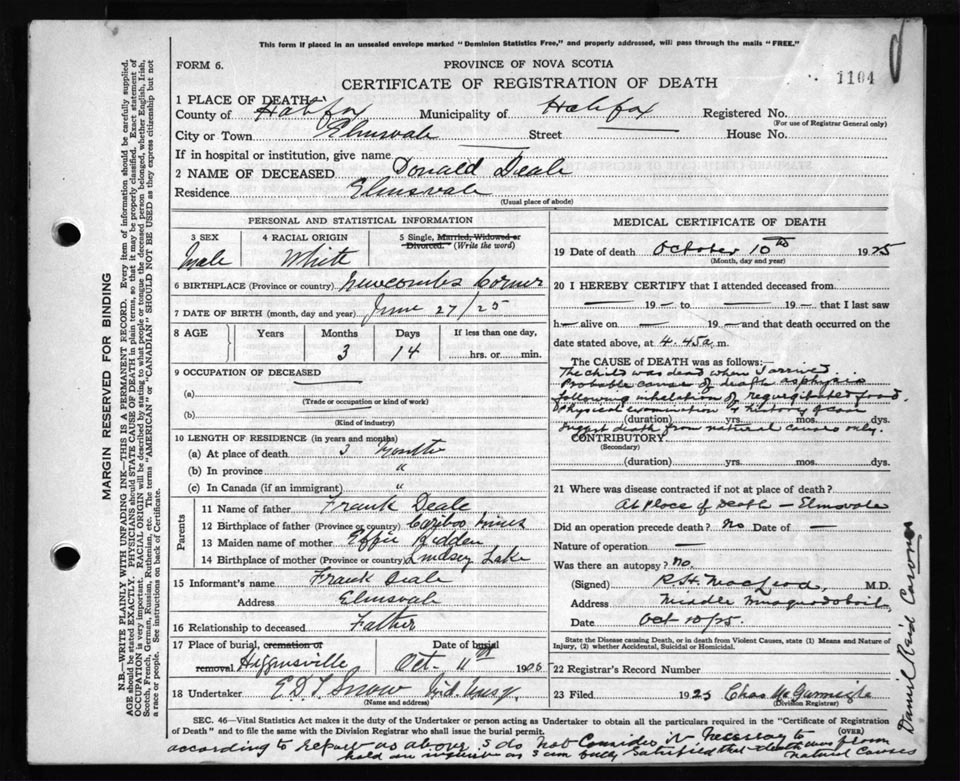 This form if placed in an unsealed envelope marked "Dominion Statistics Free," and properly addressed, will pass through the mails "FREE."
FORM 6.
PROVINCE OF NOVA SCOTIA
CERTIFICATE OF REGISTRATION OF DEATH
1104
1 PLACE OF DEATH
County of Halifax Municipality of Halifax Registered No.
(For use of Registrar General only)
City or Town Elmsvale Street House No.
If in hospital or institution, give name
2 NAME OF DECEASED Donald Deale
Residence Elmsvale
(Usual place of abode)
PERSONAL AND STATISTICAL INFORMATION
3 SEX 4 RACIAL ORIGIN 5 Single, Married, Widowed or Divorced. (Write the word)
Male White
6 BIRTHPLACE (Province or country) Newcombs Corner
7 DATE OF BIRTH (month, day and year) June 27/25
8 AGE Years Months Days If less than one day,
3 14 hrs. or min.
9 OCCUPATION OF DECEASED
(a)
(Trade or occupation or kind of work)
(b)
(Kind of industry)
10 LENGTH OF RESIDENCE (in years and months)
(a) At place of death 3 Months
(b) In province "
(c) In Canada (if an immigrant) "
Parents
11 Name of father Frank Deale
12 Birthplace of father (Province or country) Cariboo Mines
13 Maiden name of mother Effie
14 Birthplace of mother (Province or country) Lindsey Lake
15 Informant's name Frank Deale
Address Elmsvale
16 Relationship to deceased Father
17 Place of burial, cremation or removal Higginsville Date of burial Oct 11th 1926
18 Undertaker E D L Snow Mid. Musq.
(Name and address)
MEDICAL CERTIFICATE OF DEATH
19 Date of death October 10th 1925
(Month, day and year)
20 I HEREBY CERTIFY that I attended deceased from
— 19 — to — 19 — that I last saw
h— alive on — 19 — and that death occurred on the
date stated above, at 4.45 a m.
The CAUSE OF DEATH was as follows:—
The child was dead when I arrived.
Probable cause of death asphyxia
following inhalation of regurgitated food.
Physical examination & history of case
(duration) yrs. mos. dys.
suggest death from natural causes only.
CONTRIBUTORY
(Secondary)
(duration) yrs. mos. dys.
21 Where was disease contracted if not at place of death?
At Place of Death — Elmsvale
Did an operation precede death? No Date of —
Nature of operation —
Was there an autopsy? No.
(Signed) R.H. MacLeod, M.D.
Address Middle Musquodoboit
Date Oct 10/25.
State the Disease causing Death, or in death from Violent Causes, state (1) Means and Nature of Injury, (2) whether Accidental, Suicidal or Homicidal.
22 Registrar's Record Number
23 Filed 1925 Chas
(Division Registrar)
SEC. 46—Vital Statistics Act makes it the duty of the Undertaker or person acting as Undertaker to obtain all the particulars required in the "Certificate of Registration
of Death" and to file the same with the Division Registrar who shall issue the burial permit. (OVER)
according to report as above I do not consider it necessary to
hold an inquest as I am fully satisfied that death was from
natural causes
Daniel Reid Coroner
MARGIN RESERVED FOR BINDING
N.B.—WRITE PLAINLY WITH UNFADING INK—THIS IS A PERMANENT RECORD. Every item of information should be carefully supplied.
AGE should be stated EXACTLY. PHYSICIANS should STATE CAUSE OF DEATH in plain terms, so that it may be properly classified. Exact statement of
OCCUPATION is very important. RACIAL ORIGIN will be described by stating to what people or tongue the deceased person belonged, whether English, Irish,
Scotch, French, German, Russian, Ruthenian, etc. The terms "AMERICAN" or "CANADIAN" SHOULD NOT BE USED as they express citizenship but not
a race or people. See instructions on back of Certificate.